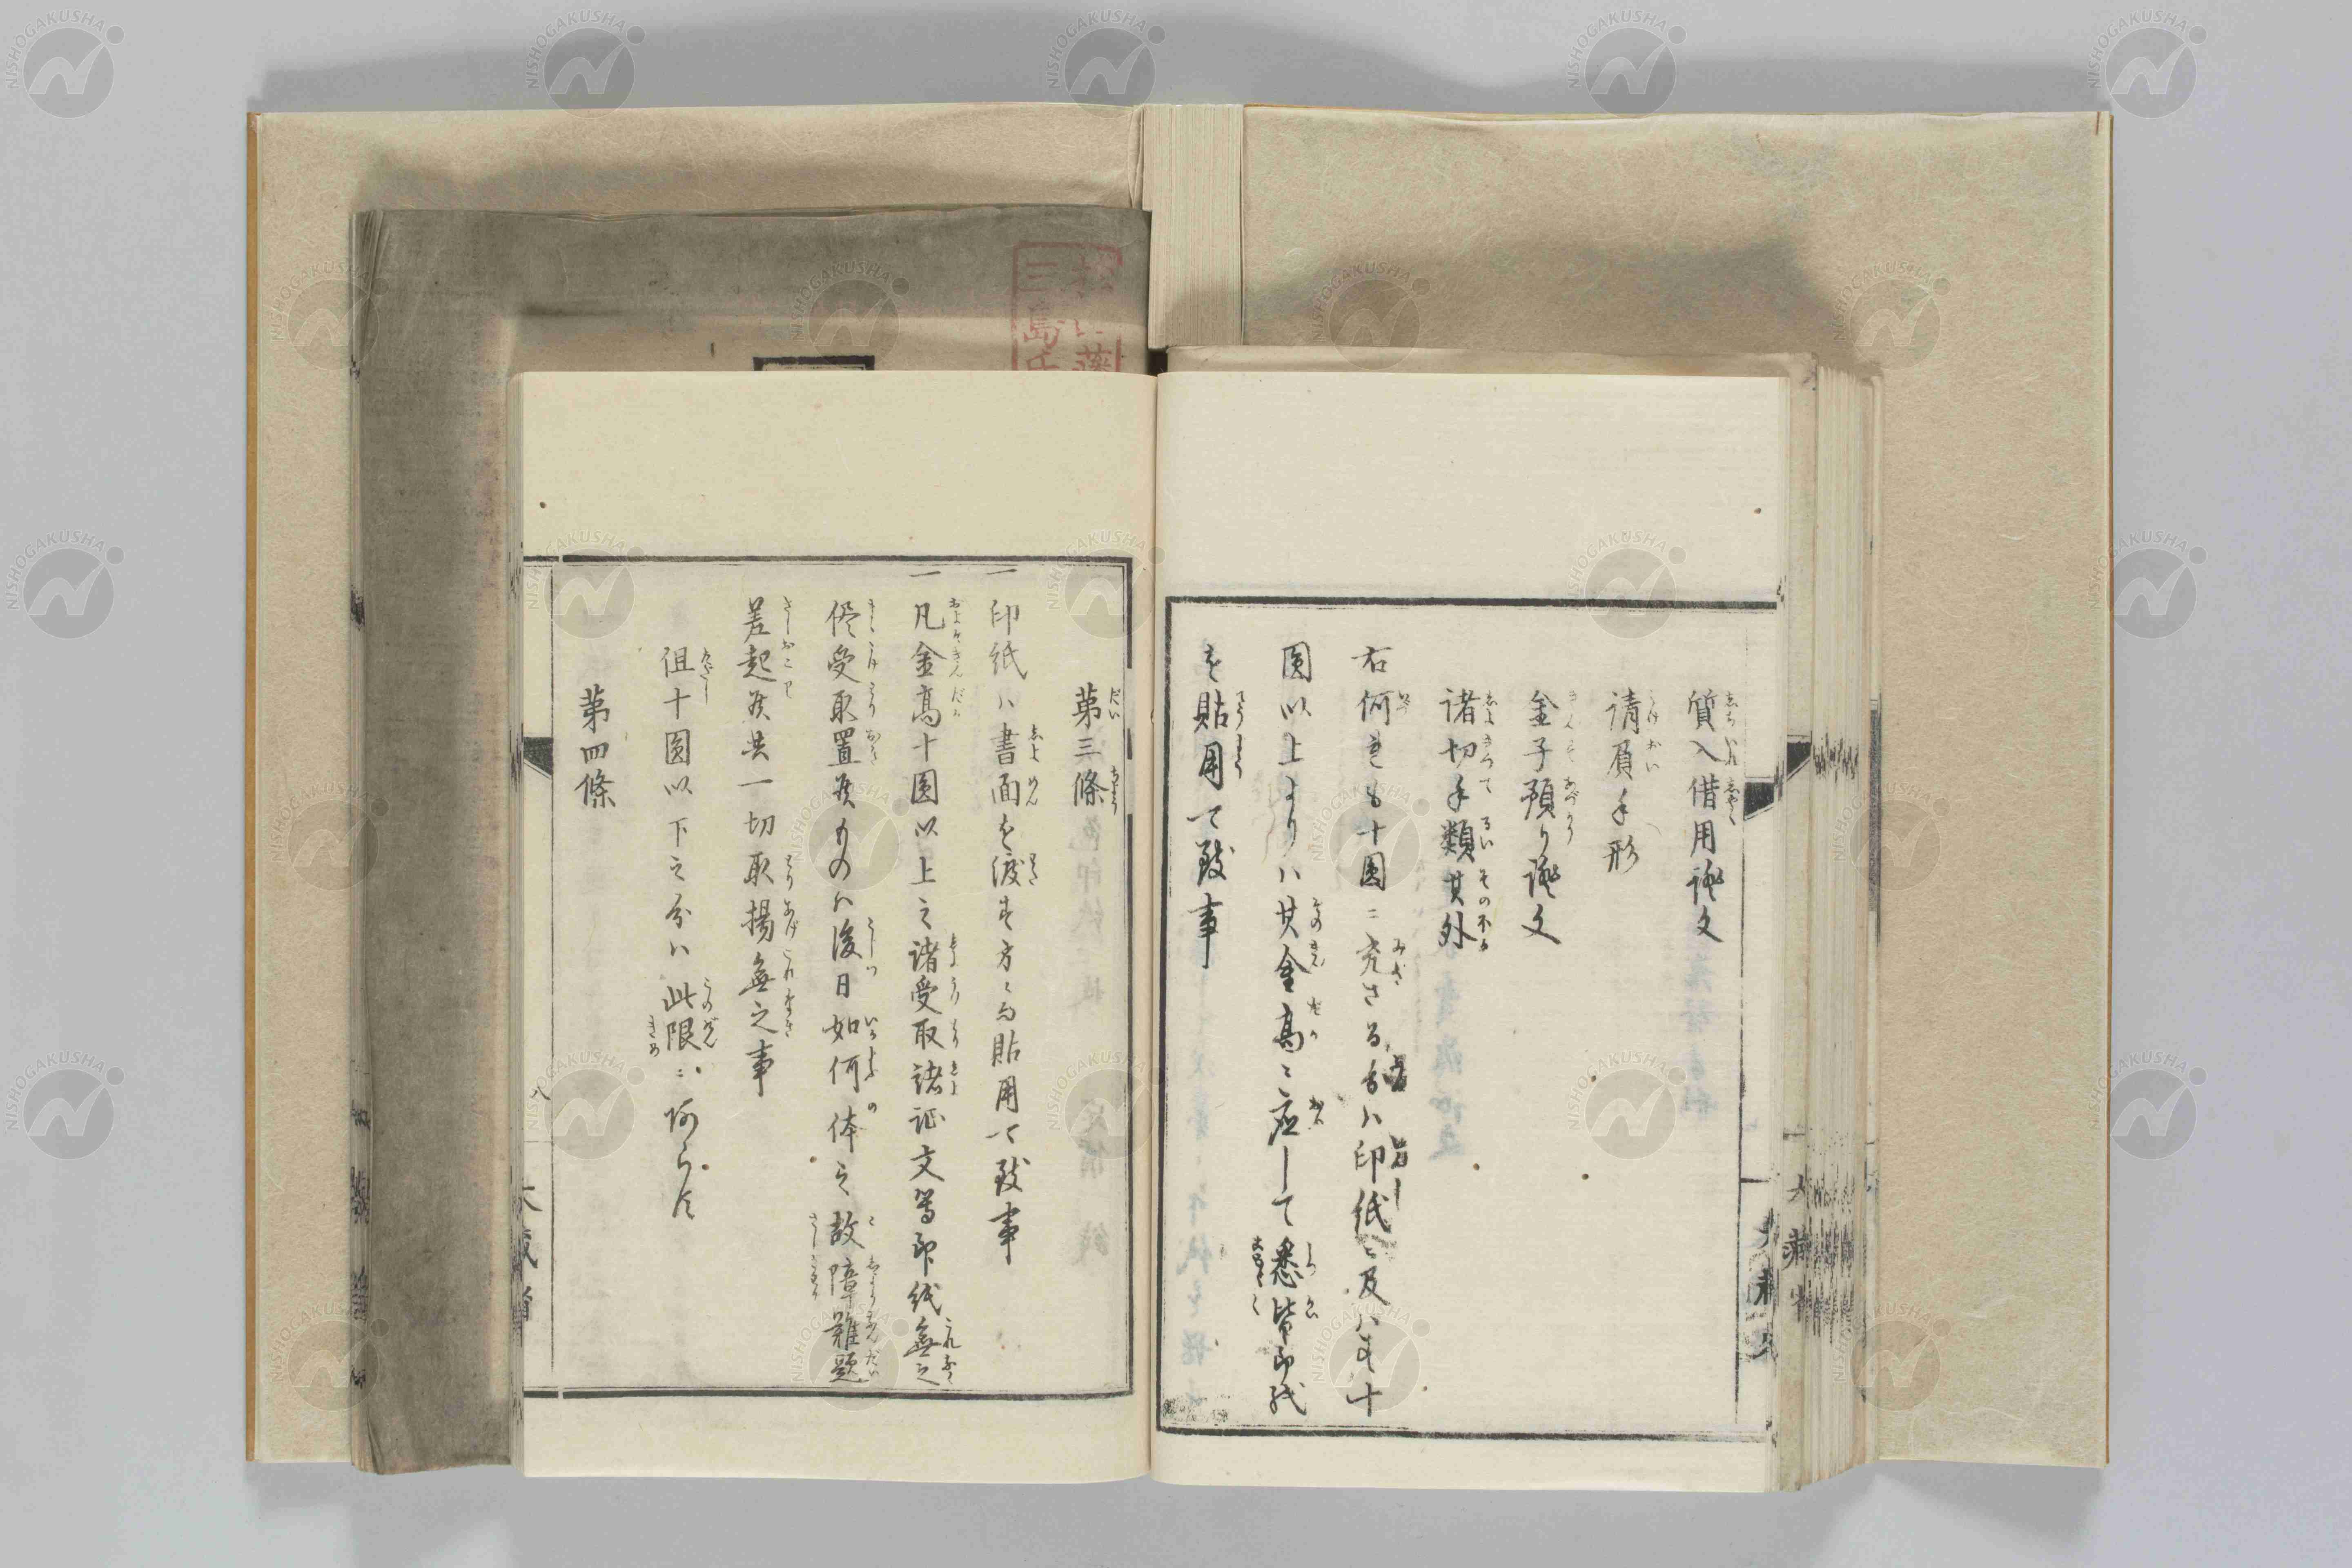 質入借用證文
請負手形
金子預り證文
諸切手類其外
右何れも十圓ニ充さる分ハ印紙ニ及ハす十
圓以上よりハ其金高ニ応して悉皆印紙
を貼用て致事
第三條
一印紙ハ書面を渡す方ニ而貼用て致事
一凡金高十圓以上之諸受取諸証文等印紙無之
侭受取置候ものハ後日如何体之故障難題
差起候共一切取揚無之事
但十圓以下之分ハ此限ニハ阿らす
第四條
八
大蔵省
NISHOGAKUSHA